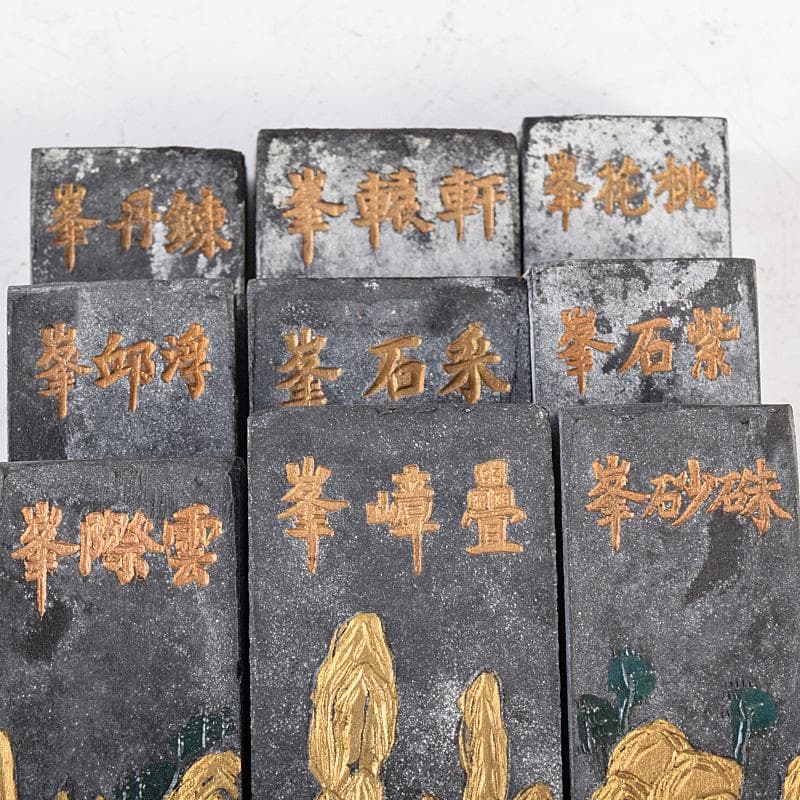 桃花峯
軒轅峯
鍊丹峯
紫石峯
采石峯
浮邱峯
硃砂峯
疊嶂峯
雲際峯